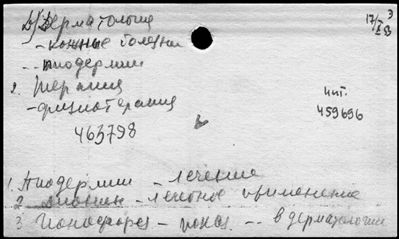 Дерматология
- кожные болезни
- пиодермии
2. Терапия
- физиотерапия
463798
17/I 53
инт.
459696
1. Пиодермии - лечение
2 - лечебное применение
3 Ионофорез - показ. - в дерматологии